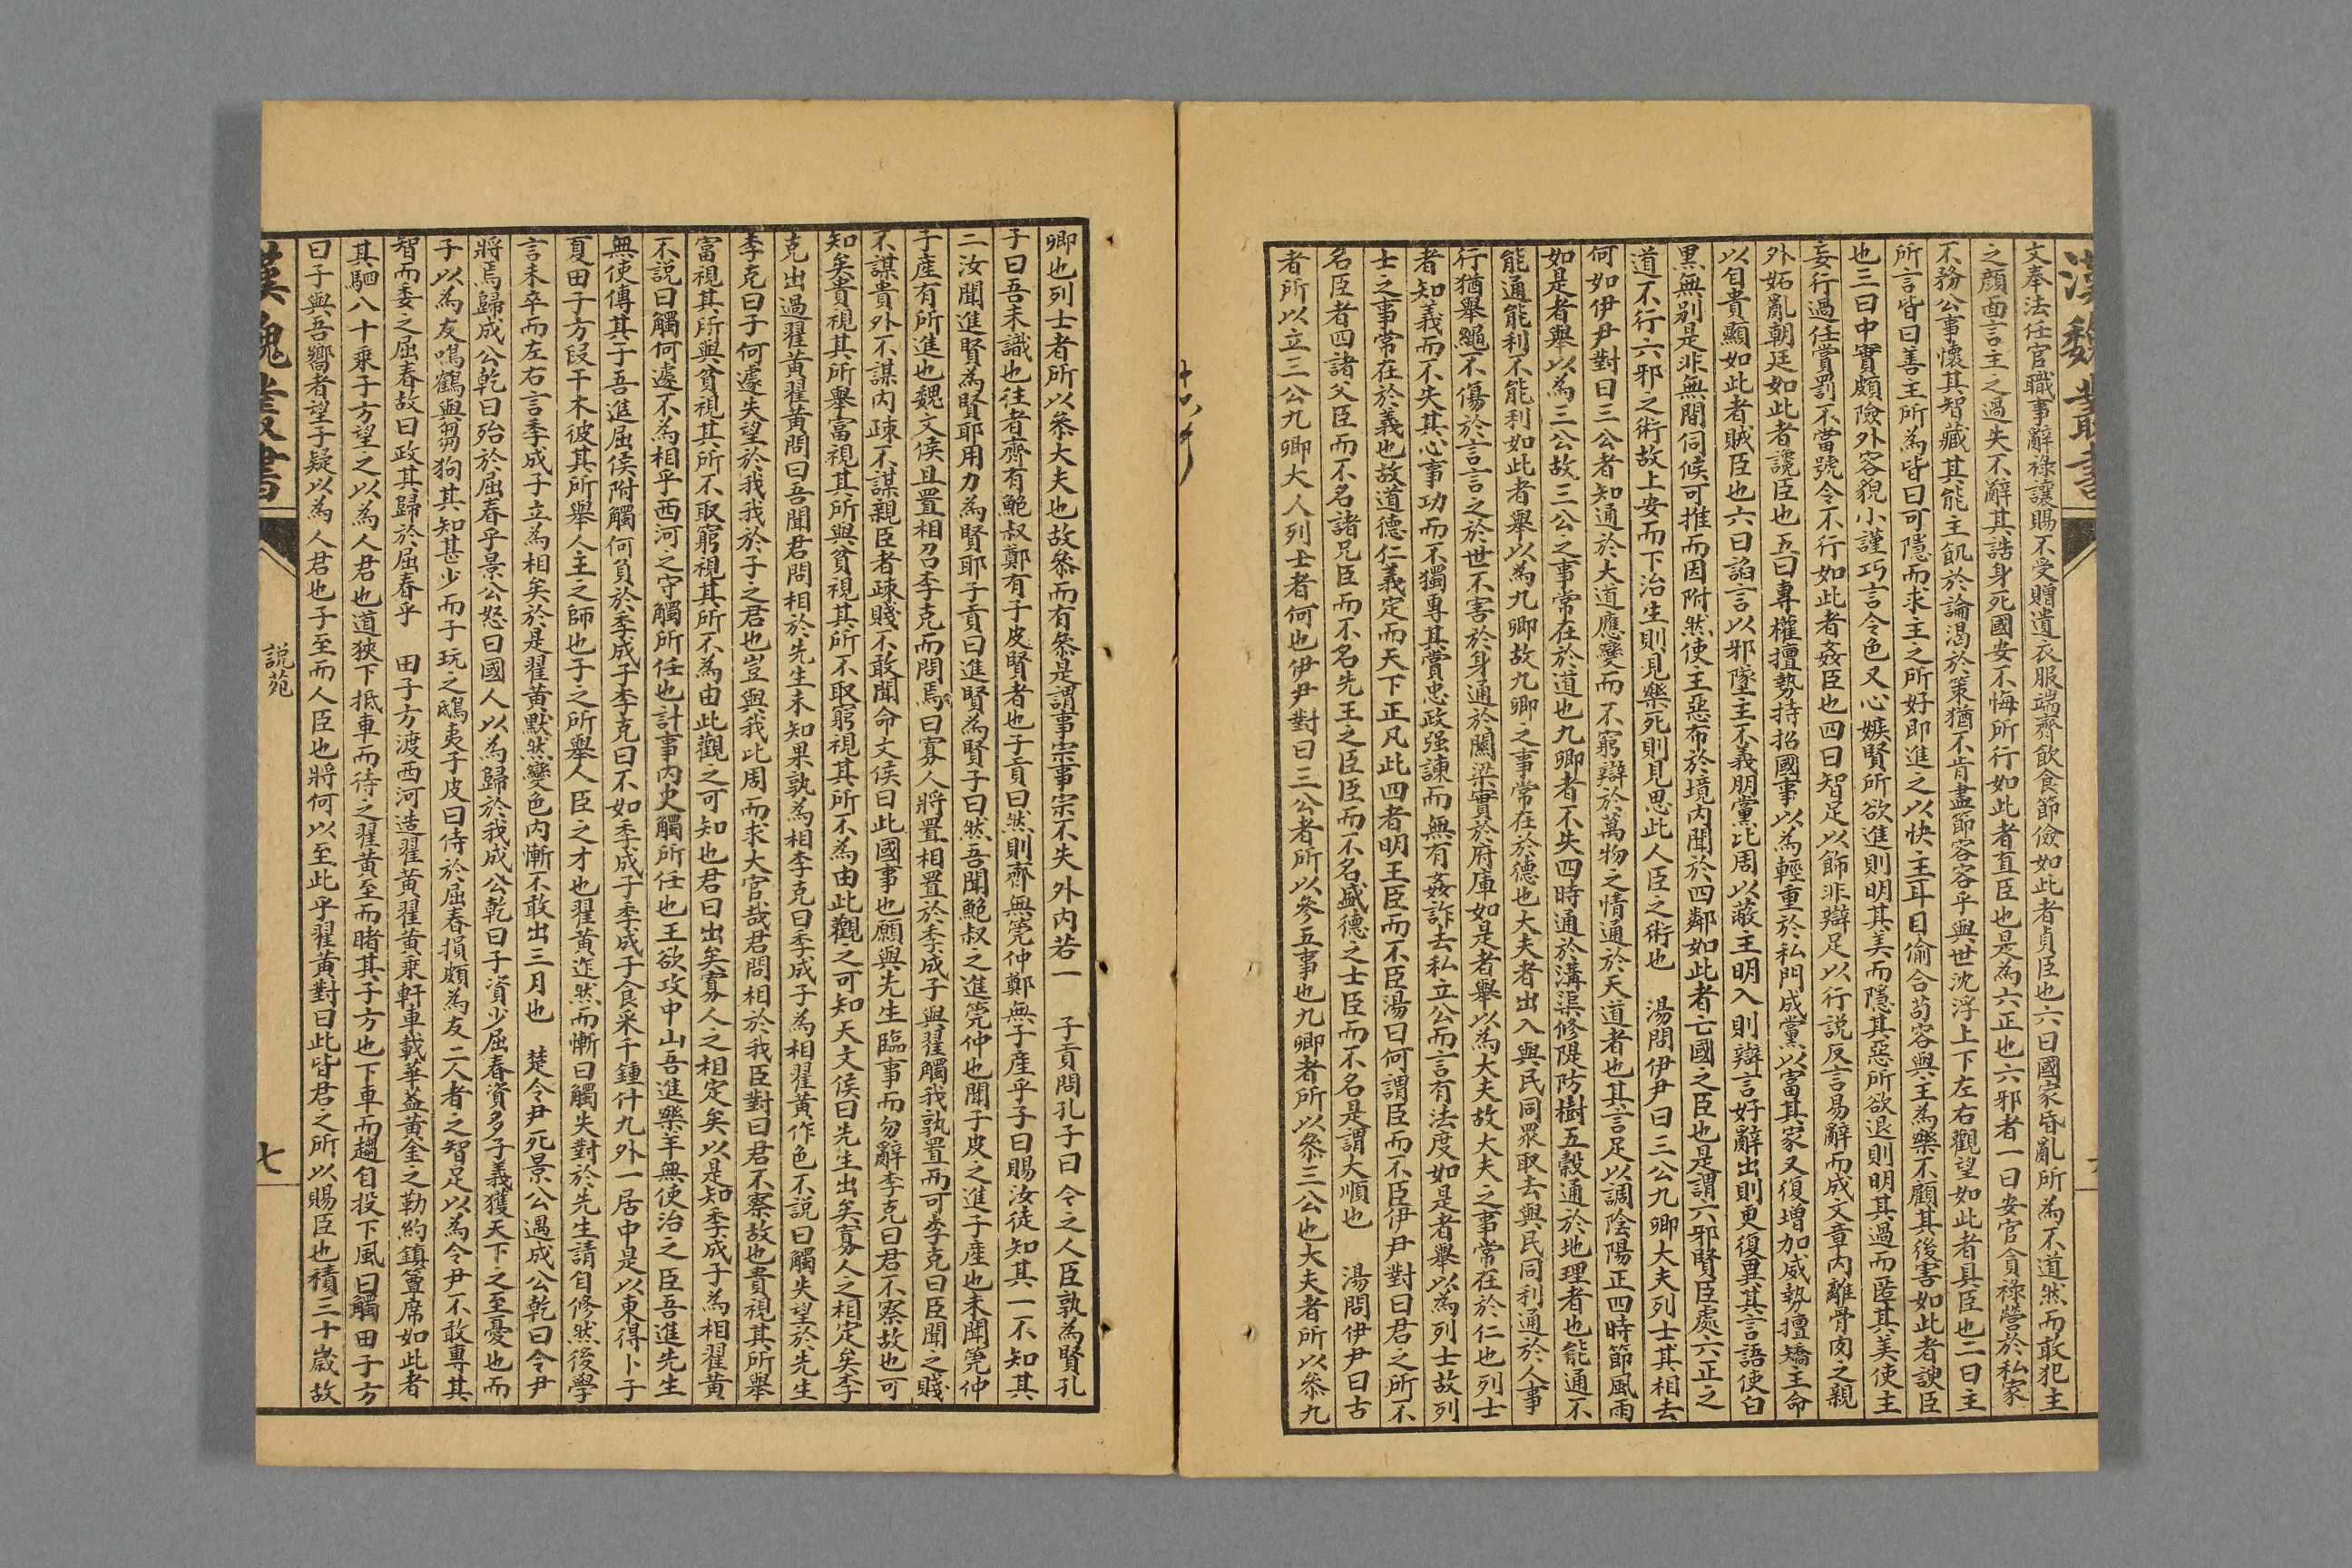 漢魏叢書
文奉法任官職事辭祿讓賜不受贈遺衣服端齊飲食節儉如此者貞臣也六曰國家昏亂所為不道然而敢犯主
之顏面言主之過失不辭其誥身死國安不悔所行如此者直臣也是為六正也六邪者一曰安官貪祿營於私家
不務公事懷其智藏其能主飢於論渴於策猶不肯盡節容容乎與世沈浮上下左右觀望如此者具臣也二曰主
所言皆曰善主所為皆曰可隱而求主之所好即進之以快主耳目偷合苟容與主為樂不顧其後害如此者諛臣
也三曰中實頗險外容貌小謹巧言令色又心嫉賢所欲進則明其美而隱其惡所欲退則明其過而匿其美使主
妄行過任賞罰不當號令不行如此者姦臣也四曰智足以飾非辯足以行說反言易辭而成文章內離骨肉之親
外妬亂朝廷如此者讒臣也五曰專權擅勢持招國事以為輕重於私門成黨以富其家又復增加威勢擅矯主命
以自貴顯如此者賊臣也六曰諂言以邪墜主不義朋黨比周以蔽主明入則辯言好辭出則更復異其言語使白
黑無别是非無間伺候可推而因附然使王惡布於境內聞於四鄰如此者亡國之臣也是謂六邪賢臣處六正之
道不行六邪之術故上安而下治生則見樂死則見思此人臣之術也　湯問伊尹曰三公九卿大夫列士其相去
何如伊尹對曰三公者知通於大道應變而不窮辯於萬物之情通於天道者也其言足以調陰陽正四時節風雨
如是者舉以為三公故三公之事常在於道也九卿者不失四時通於溝渠修隄防樹五穀通於地理者也能通不
能通能利不能利如此者舉以為九卿故九卿之事常在於德也大夫者出入與民同眾取去與民同利通於人事
行猶舉繩不傷於言言之於世不害於身通於關梁實於府庫如是者舉以為大夫故大夫之事常在於仁也列士
者知義而不失其心事功而不獨專其賞忠政强諫而無有姦詐去私立公而言有法度如是者舉以為列士故列
士之事常在於義也故道德仁義定而天下正凡此四者明王臣而不臣湯曰何謂臣而不臣伊尹對曰君之所不
名臣者四諸父臣而不名諸兄臣而不名先王之臣臣而不名盛德之士臣而不名是謂大順也　湯問伊尹曰古
者所以立三公九卿大人列士者何也伊尹對曰三公者所以參五事也九卿者所以參三公也大夫者所以參九
卿也列士者所以叅大夫也故叅而有叅是謂事宗事宗不失外內若一　子貢問孔子曰今之人臣孰為賢孔
子曰吾未識也往者齊有鮑叔鄭有子皮賢者也子貢曰然則齊無筦仲鄭無子產乎子曰賜汝徒知其一不知其
二汝聞進賢為賢耶用力為賢耶子貢曰進賢為賢子曰然吾聞鮑叔之進筦仲也聞子皮之進子產也未聞筦仲
子產有所進也魏文侯且置相召李克而問焉曰寡人將置相置於季成子與翟觸我孰置而可李克曰臣聞之賤
不謀貴外不謀內疎不謀親臣者疎賤不敢聞命文侯曰此國事也願與先生臨事而勿辭李克曰君不察故也可
知矣貴視其所舉富視其所與貧視其所不取窮視其所不為由此觀之可知天文侯曰先生出矣寡人之相定矣李
克出過翟黃翟黃問曰吾聞君問相於先生未知果孰為相李克曰季成子為相翟黃作色不說曰觸失望於先生
李克曰子何遽失望於我我於子之君也豈與我比周而求大官哉君問相於我臣對曰君不察故也貴視其所舉
富視其所與貧視其所不取窮視其所不為由此觀之可知也君曰出矣寡人之相定矣以是知季成子為相翟黃
不說曰觸何遽不為相乎西河之守觸所任也計事內史觸所任也王欲攻中山吾進樂羊無使治之臣吾進先生
無使傅其子吾進屈侯附觸何負於季成子李克曰不如季成子季成子食采千鍾什九外一居中是以東得卜子
夏田子方段干木彼其所舉人主之師也子之所舉人臣之才也翟黃迮然而慚曰觸失對於先生請自修然後學
言未卒而左右言季成子立為相矣於是翟黃默然變色內慚不敢出三月也　楚令尹死景公遇成公乾曰令尹
將焉歸成公乾曰殆於屈春乎景公怒曰國人以為歸於我成公乾曰子資少屈春資多子義獲天下之至憂也而
子以為友鳴鶴與芻狗其知甚少而子玩之鴟夷子皮曰侍於屈春損頗為友二人者之智足以為令尹不敢專其
智而委之屈春故曰政其歸於屈春乎　田子方渡西河造翟黃翟黃乘軒車載華蓋黃金之勒約鎮簟席如此者
其駟八十乘子方望之以為人君也道狹下抵車而待之翟黃至而睹其子方也下車而趨自投下風曰觸田子方
曰子與吾嚮者望子疑以為人君也子至而人臣也將何以至此乎翟黃對曰此皆君之所以賜臣也積三十歲故
漢魏叢書
說苑
七